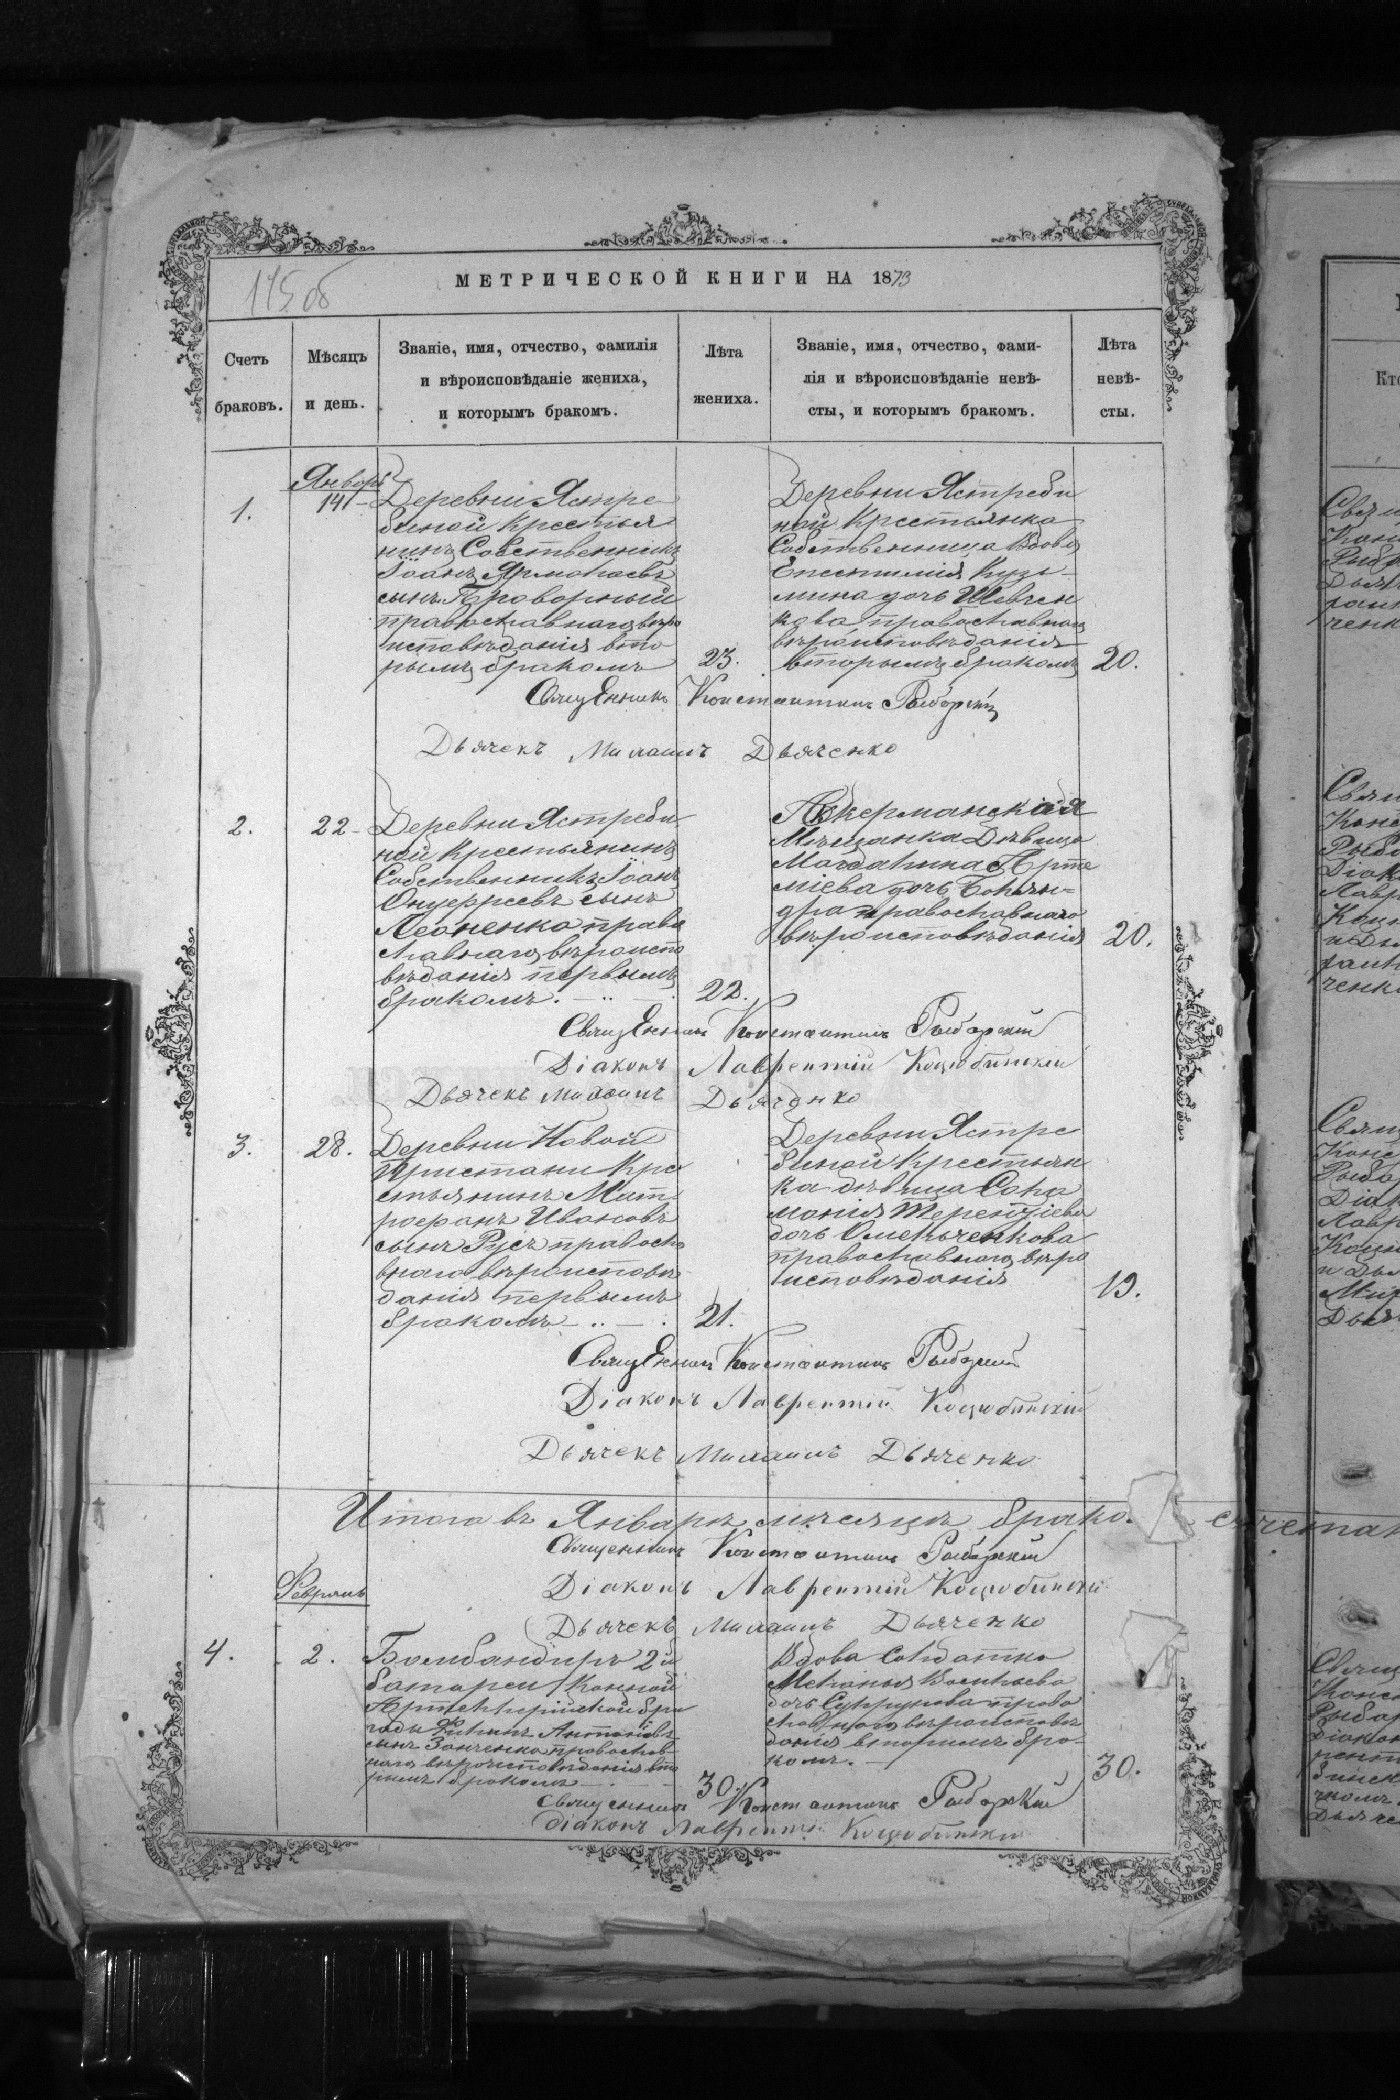 175 об
МЕТРИЧЕСКОЙ КНИГИ НА 1873
Счетъ
браковъ.
Мѣсяцъ
и день.
Званіе, имя, отчество, фамилія
и вѣроисповѣданіе жениха,
и которымъ бракомъ.
Лѣта
жениха.
Званіе, имя, отчество, фами-
лія и вѣроисповѣданіе невѣ-
сты, и которымъ бракомъ.
Лѣта
невѣ-
сты.
Январь
1.
14
Деревни Ястре
биной Крестья
нинъ Собственникъ
Іоанъ Ярмолаевъ
сынъ Проворный
православнаго вѣро
исповѣданія вто
рымъ бракомъ
23.
Деревни Ястреби
ной Крестьянка
Собственница Вдова
Епестимія Кузь-
мина дочь Шевчен
кова православнаго
вѣроисповѣданія
вторымъ бракомъ
20.
Священникъ Константинъ Рыбарскій
Дьячекъ Михаилъ Дьяченко
2.
22
Деревни Ястреби
ной Крестьянинъ
Собственникъ Іоанъ
Онуфріевъ сынъ
Леоненко право
славнаго вѣроиспо
вѣданія первымъ
бракомъ.
22.
Аккерманская
Мѣщанка Дѣвица
Магдалина Арте
міева дочь
православнаго
вѣроисповѣданія
20.
Священникъ Константинъ Рыбарскій
Діаконъ Лаврентій Коцюбинскій
Дьячекъ Михаилъ Дьяченко
3.
28.
Деревни Новой
Пристани Кре
стьянинъ Мит
рофанъ Ивановъ
сынъ Русъ правосла
внаго вѣроисповѣ
данія первымъ
бракомъ
21.
Деревни Ястре
биной Крестьян
ка дѣвица Соло
монія Терентіева
дочь Омельченкова
православнаго вѣро
исповѣданія
19.
Священникъ Константинъ Рыбарскій
Діаконъ Лаврентій Коцюбинскій
Дьячекъ Михаилъ Дьяченко
Итого въ Январѣ мѣсяцѣ брако
Священникъ Константинъ Рыбарскій
Діаконъ Лаврентій Коцюбинскій
Дьячекъ Михаилъ Дьяченко
Февраль
4.
2.
Бомбандиръ 2й
батареи Конной
Артиллерійской бри
гады Антоновъ
сынъ Занченко православ
наго вѣроисповѣданія вто
рымъ бракомъ
30.
Вдова Солдатка
Меланья Васильева
дочь Супрунова право
славнаго вѣроисповѣ
данія вторимъ бра-
комъ.
30.
Священникъ Константинъ Рыбарскій
Діаконъ Лаврентій Коцюбинскій